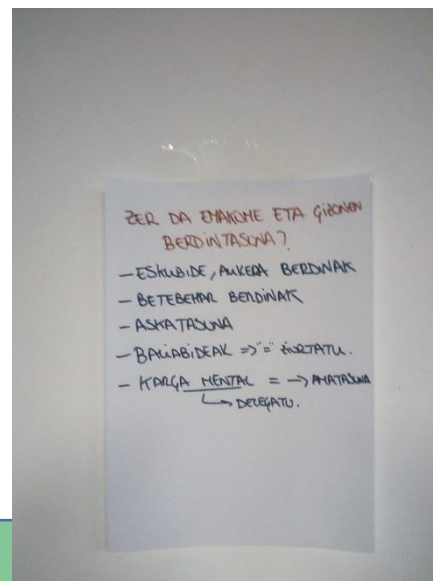 ZER DA EMAKUME ETA GIZONEN
BERDINTASUNA?
- ESKUBIDE, AUKERA BERDINAK
- BETEBEHAR BERDINAK
- ASKATASUNA
- BALIABIDEAK => "=" ZIURTATU.
- KARGA MENTAL = -> AMATASUNA
↳ DELEGATU.